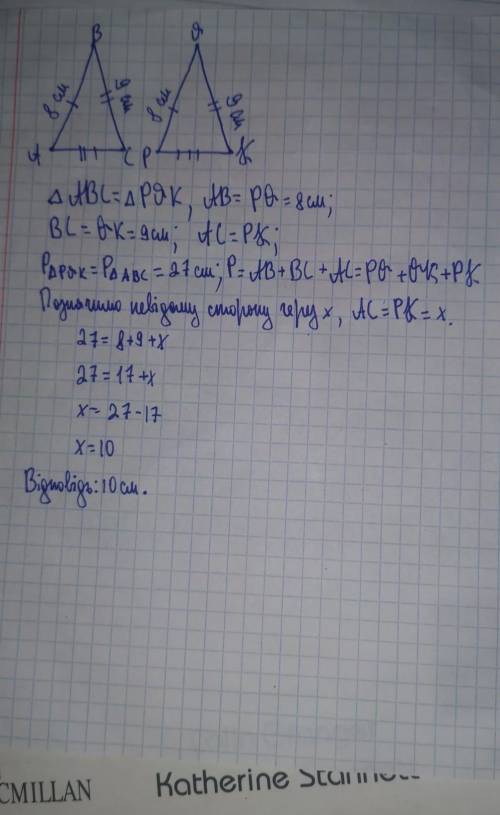 B Q
8 см 9 см 8 см 9 см
A C P K
△ABC = △PQK, AB = PQ = 8 см;
BC = QK = 9 см; AC = PK;
P△PQK = P△ABC = 27 см; P = AB + BC + AC = PQ + QK + PK
Позначимо невідому сторону через x, AC = PK = x.
27 = 8 + 9 + x
27 = 17 + x
x = 27 - 17
x = 10
Відповідь: 10 см.
CMILLAN Katherine